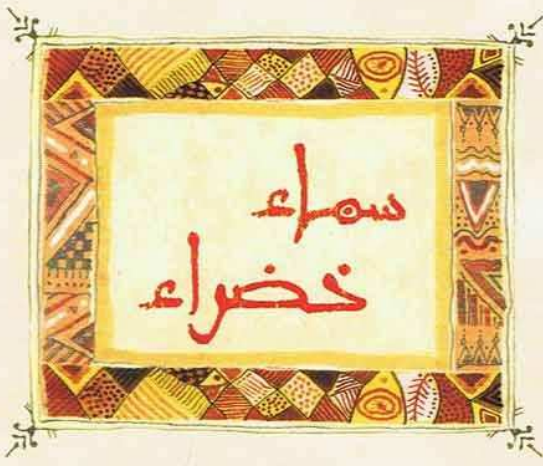 سماء
خضراء